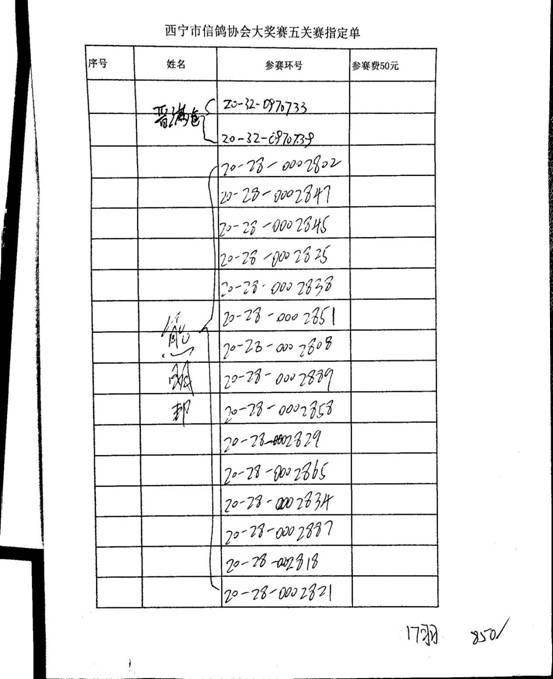 西宁市信鸽协会大奖赛五关赛指定单
序号 姓名 参赛环号 参赛费50元
20-32-0970733
20-32-0970739
20-28-0002802
20-28-0002847
20-28-0002845
20-28-0002825
20-28-0002838
20-28-0002851
20-28-0002808
20-28-0002889
20-28-0002858
20-28-0002829
20-28-0002865
20-28-0002834
20-28-0002887
20-28-0002818
20-28-0002821
17羽 850/